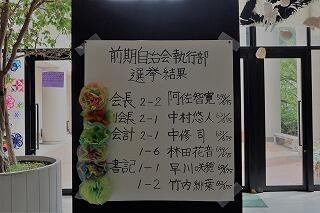 前期自治会執行部
選挙結果
会長 2-2 阿佐智寛
副会長 2-1 中村悠人
会計 2-1 中修司
1-6 林田花音
書記 1-1 早川咲穂
1-2 竹内紗葉